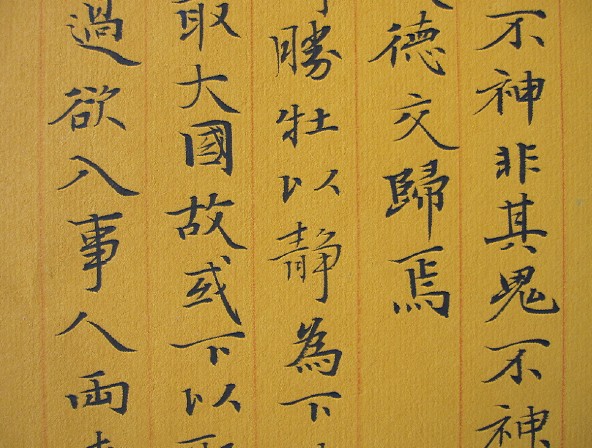 不神非其鬼不神
德交歸焉
勝牡以靜為下
取大國故或下以取
過欲入事人兩